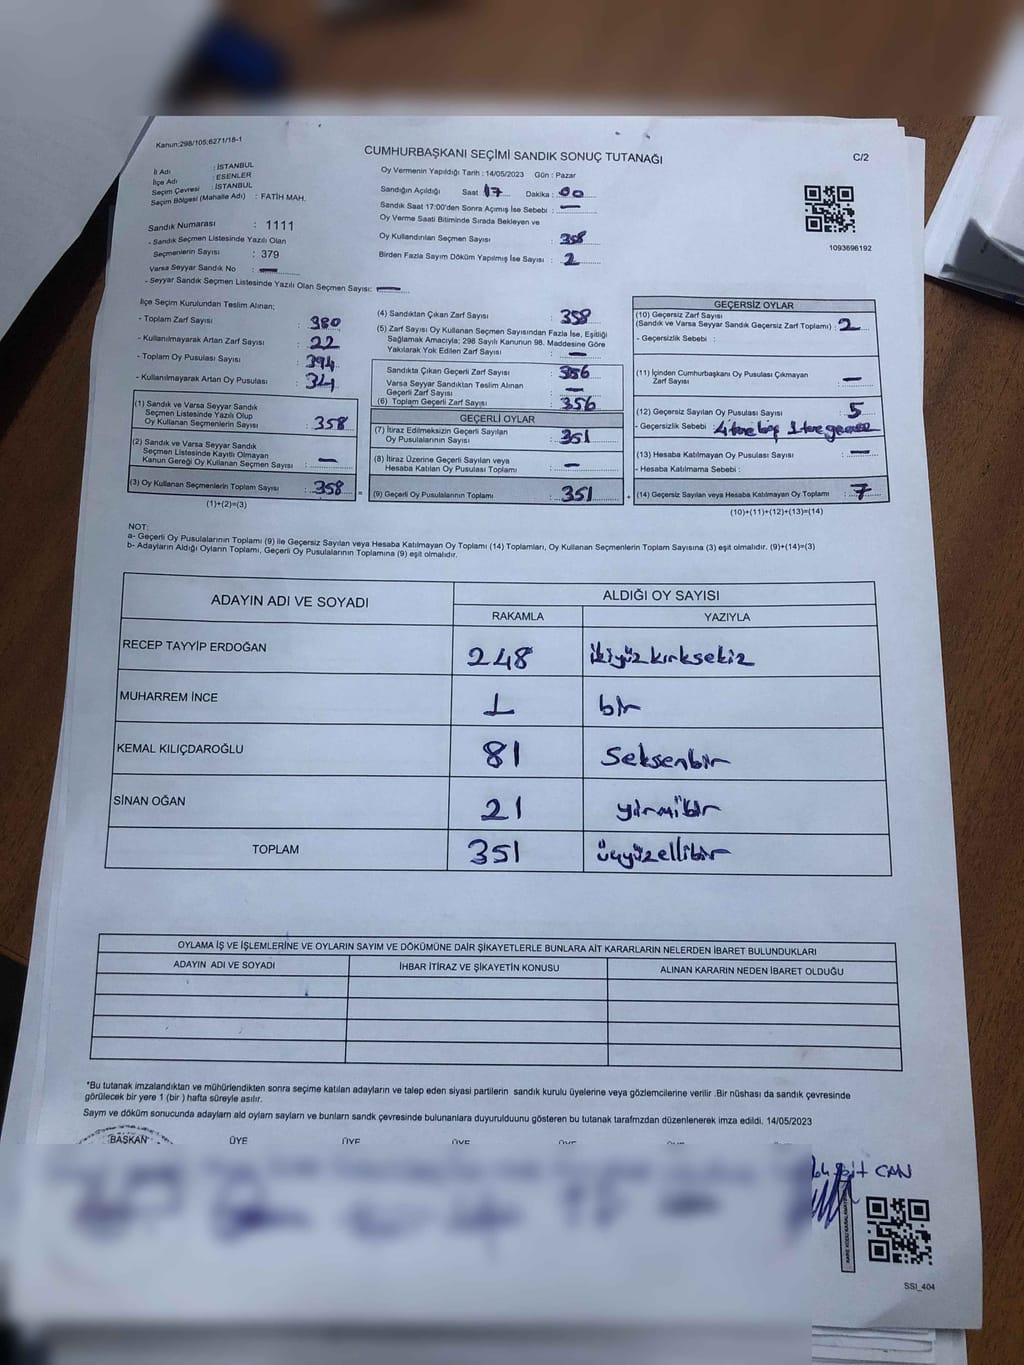 Kanun:298/105;6271/18-1
CUMHURBAŞKANI SEÇİMİ SANDIK SONUÇ TUTANAĞI
C/2
İl Adı : İSTANBUL
İlçe Adı : ESENLER
Seçim Çevresi : İSTANBUL
Seçim Bölgesi (Mahalle Adı) : FATİH MAH.
Sandık Numarası : 1111
- Sandık Seçmen Listesinde Yazılı Olan
Seçmenlerin Sayısı : 379
Varsa Seyyar Sandık No : —
- Seyyar Sandık Seçmen Listesinde Yazılı Olan Seçmen Sayısı: —
Oy Vermenin Yapıldığı Tarih : 14/05/2023 Gün : Pazar
Sandığın Açıldığı Saat : 17 Dakika : 00
Sandık Saat 17:00'den Sonra Açımış İse Sebebi : —
Oy Verme Saati Bitiminde Sırada Bekleyen ve
Oy Kullandırılan Seçmen Sayısı : 358
Birden Fazla Sayım Döküm Yapılmış İse Sayısı : 2
1093696192
İlçe Seçim Kurulundan Teslim Alınan;
- Toplam Zarf Sayısı : 380
- Kullanılmayarak Artan Zarf Sayısı : 22
- Toplam Oy Pusulası Sayısı : 394
- Kullanılmayarak Artan Oy Pusulası : 34
(1) Sandık ve Varsa Seyyar Sandık
Seçmen Listesinde Yazılı Olup
Oy Kullanan Seçmenlerin Sayısı : 358
(2) Sandık ve Varsa Seyyar Sandık
Seçmen Listesinde Kayıtlı Olmayan
Kanun Gereği Oy Kullanan Seçmen Sayısı : —
(3) Oy Kullanan Seçmenlerin Toplam Sayısı : 358
(1)+(2)=(3)
(4) Sandıktan Çıkan Zarf Sayısı : 358
(5) Zarf Sayısı Oy Kullanan Seçmen Sayısından Fazla İse, Eşitliği
Sağlamak Amacıyla; 298 Sayılı Kanunun 98. Maddesine Göre
Yakılarak Yok Edilen Zarf Sayısı : —
Sandıkta Çıkan Geçerli Zarf Sayısı : 356
Varsa Seyyar Sandıktan Teslim Alınan
Geçerli Zarf Sayısı : —
(6) Toplam Geçerli Zarf Sayısı : 356
GEÇERLİ OYLAR
(7) İtiraz Edilmeksizin Geçerli Sayılan
Oy Pusulalarının Sayısı : 351
(8) İtiraz Üzerine Geçerli Sayılan veya
Hesaba Katılan Oy Pusulası Toplamı : —
= (9) Geçerli Oy Pusulalarının Toplamı : 351 +
GEÇERSİZ OYLAR
(10) Geçersiz Zarf Sayısı
(Sandık ve Varsa Seyyar Sandık Geçersiz Zarf Toplamı) : 2
- Geçersizlik Sebebi :
(11) İçinden Cumhurbaşkanı Oy Pusulası Çıkmayan
Zarf Sayısı : —
(12) Geçersiz Sayılan Oy Pusulası Sayısı : 5
- Geçersizlik Sebebi : 4 tane 1 tane
(13) Hesaba Katılmayan Oy Pusulası Sayısı : —
- Hesaba Katılmama Sebebi :
(14) Geçersiz Sayılan veya Hesaba Katılmayan Oy Toplamı : 7
(10)+(11)+(12)+(13)=(14)
NOT:
a- Geçerli Oy Pusulalarının Toplamı (9) ile Geçersiz Sayılan veya Hesaba Katılmayan Oy Toplamı (14) Toplamları, Oy Kullanan Seçmenlerin Toplam Sayısına (3) eşit olmalıdır. (9)+(14)=(3)
b- Adayların Aldığı Oyların Toplamı, Geçerli Oy Pusulalarının Toplamına (9) eşit olmalıdır.
ADAYIN ADI VE SOYADI ALDIĞI OY SAYISI
RAKAMLA YAZIYLA
RECEP TAYYİP ERDOĞAN 248 ikiyüzkırksekiz
MUHARREM İNCE 1 bir
KEMAL KILIÇDAROĞLU 81 Seksenbir
SİNAN OĞAN 21 yirmibir
TOPLAM 351 üçyüzellibir
OYLAMA İŞ VE İŞLEMLERİNE VE OYLARIN SAYIM VE DÖKÜMÜNE DAİR ŞİKAYETLERLE BUNLARA AİT KARARLARIN NELERDEN İBARET BULUNDUKLARI
ADAYIN ADI VE SOYADI İHBAR İTİRAZ VE ŞİKAYETİN KONUSU ALINAN KARARIN NEDEN İBARET OLDUĞU
*Bu tutanak imzalandıktan ve mühürlendikten sonra seçime katılan adayların ve talep eden siyasi partilerin sandık kurulu üyelerine veya gözlemcilerine verilir .Bir nüshası da sandık çevresinde
görülecek bir yere 1 (bir ) hafta süreyle asılır.
Saym ve döküm sonucunda adaylarn ald oylarn saylarn ve bunlarn sandk çevresinde bulunanlara duyurulduunu gösteren bu tutanak tarafmzdan düzenlenerek imza edildi. 14/05/2023
BAŞKAN ÜYE ÜYE ÜYE ÜYE ÜYE
CAN
SSI_404